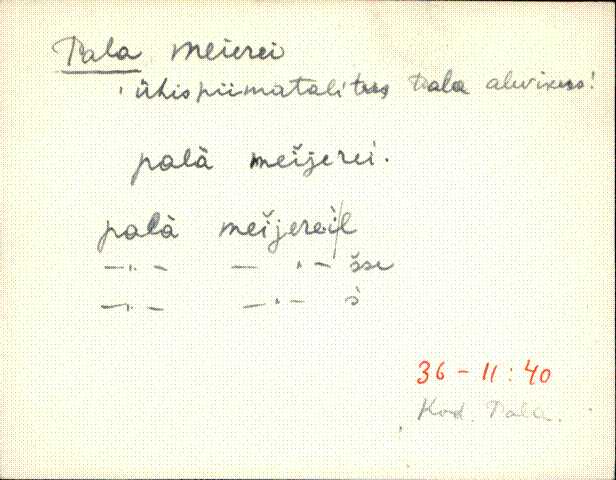 Pala meierei
'ühispiimatalitus Pala alevikus'
palà meìjerei.
palà meìjerei|l
—"— — " — sse
—"— — " — s
36 - 11 : 40
Kod. Pala.